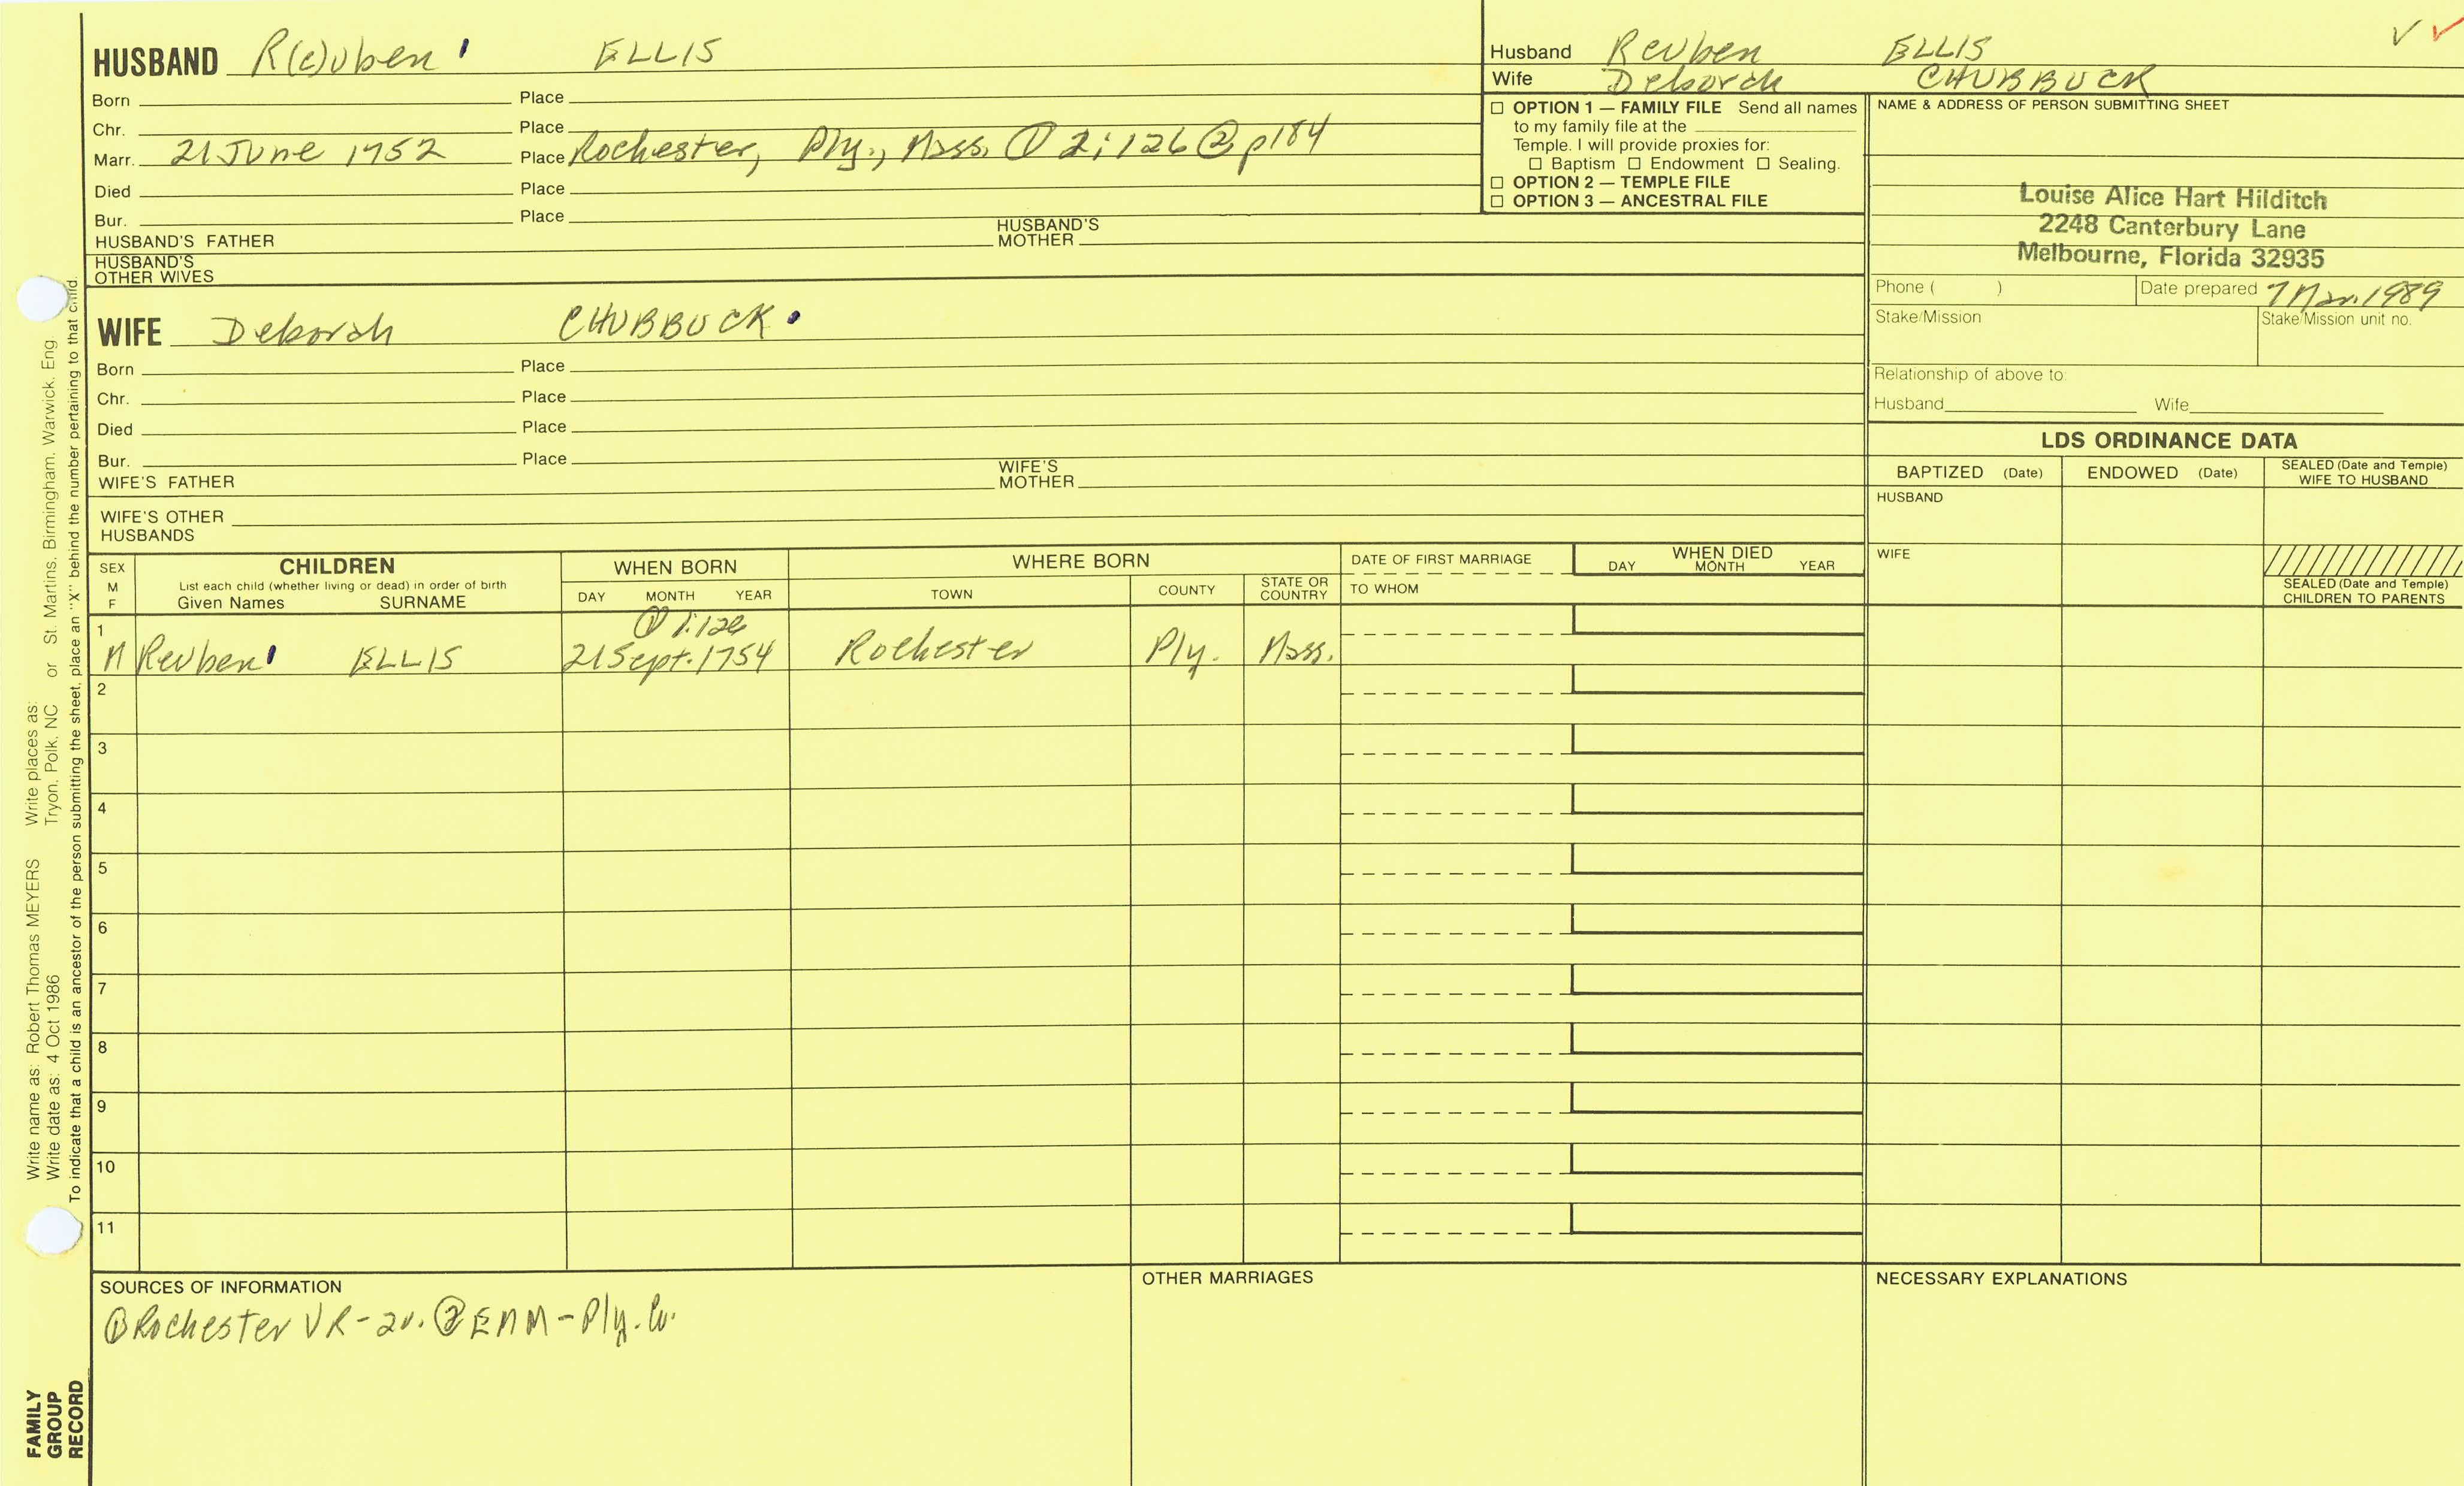 HUSBAND R(e)uben ELLIS
Born Place
Chr. Place
Marr. 21 June 1752 Place Rochester, Ply., Mass. ① 2:126 ② p184
Died Place
Bur. Place
HUSBAND'S FATHER HUSBAND'S MOTHER
HUSBAND'S
OTHER WIVES
Husband Reuben ELLIS
Wife Deborah CHUBBUCK
OPTION 1 — FAMILY FILE Send all names
to my family file at the
Temple. I will provide proxies for:
Baptism Endowment Sealing.
OPTION 2 — TEMPLE FILE
OPTION 3 — ANCESTRAL FILE
NAME & ADDRESS OF PERSON SUBMITTING SHEET
Louise Alice Hart Hilditch
2248 Canterbury Lane
Melbourne, Florida 32935
Phone ( ) Date prepared 7 Mar. 1989
Stake/Mission Stake/Mission unit no.
Relationship of above to:
Husband Wife
WIFE Deborah CHUBBUCK
Born Place
Chr. Place
Died Place
Bur. Place
WIFE'S FATHER WIFE'S MOTHER
WIFE'S OTHER
HUSBANDS
LDS ORDINANCE DATA
BAPTIZED (Date) ENDOWED (Date) SEALED (Date and Temple) WIFE TO HUSBAND
HUSBAND
WIFE
SEALED (Date and Temple)
CHILDREN TO PARENTS
SEX M F
CHILDREN
List each child (whether living or dead) in order of birth
Given Names SURNAME
WHEN BORN
DAY MONTH YEAR
WHERE BORN
TOWN COUNTY STATE OR COUNTRY
DATE OF FIRST MARRIAGE
TO WHOM
WHEN DIED
DAY MONTH YEAR
① 1:126
1 M Reuben ELLIS 21 Sept. 1754 Rochester Ply. Mass.
2
3
4
5
6
7
8
9
10
11
SOURCES OF INFORMATION
① Rochester VR-2v. ② EMM-Ply. Co.
OTHER MARRIAGES
NECESSARY EXPLANATIONS
Write name as: Robert Thomas MEYERS Write places as:
Write date as: 4 Oct 1986 Tryon, Polk, NC or St. Martins, Birmingham, Warwick, Eng.
To indicate that a child is an ancestor of the person submitting the sheet, place an "X" behind the number pertaining to that child.
FAMILY
GROUP
RECORD